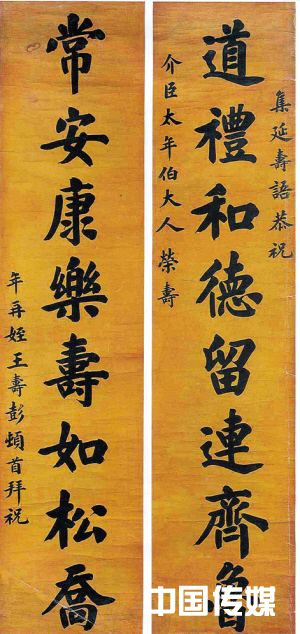 集延壽語恭祝
道禮和德留連齊魯
介臣太年伯大人榮壽
常安康樂壽如松喬
年再姪王壽彭頓首拜祝
中国传媒